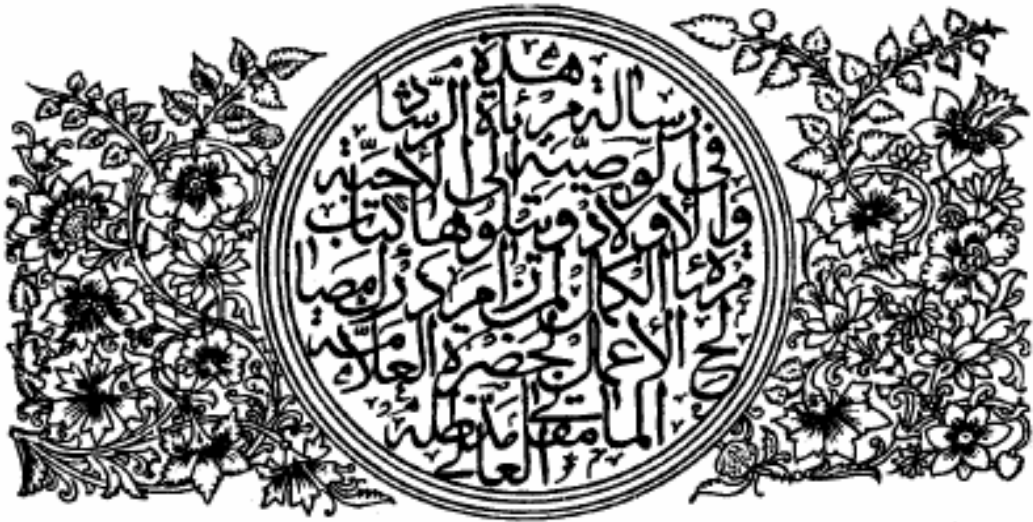 هذه
رسالة مرئاة الرشاد
في الوصية الى الأحبة
والأولاد ويتلوها كتاب
مرئاة الكمال لمن رام درك مصا
لح الأعمال لحضرة العلامة
المامقاني مد ظله
العالي